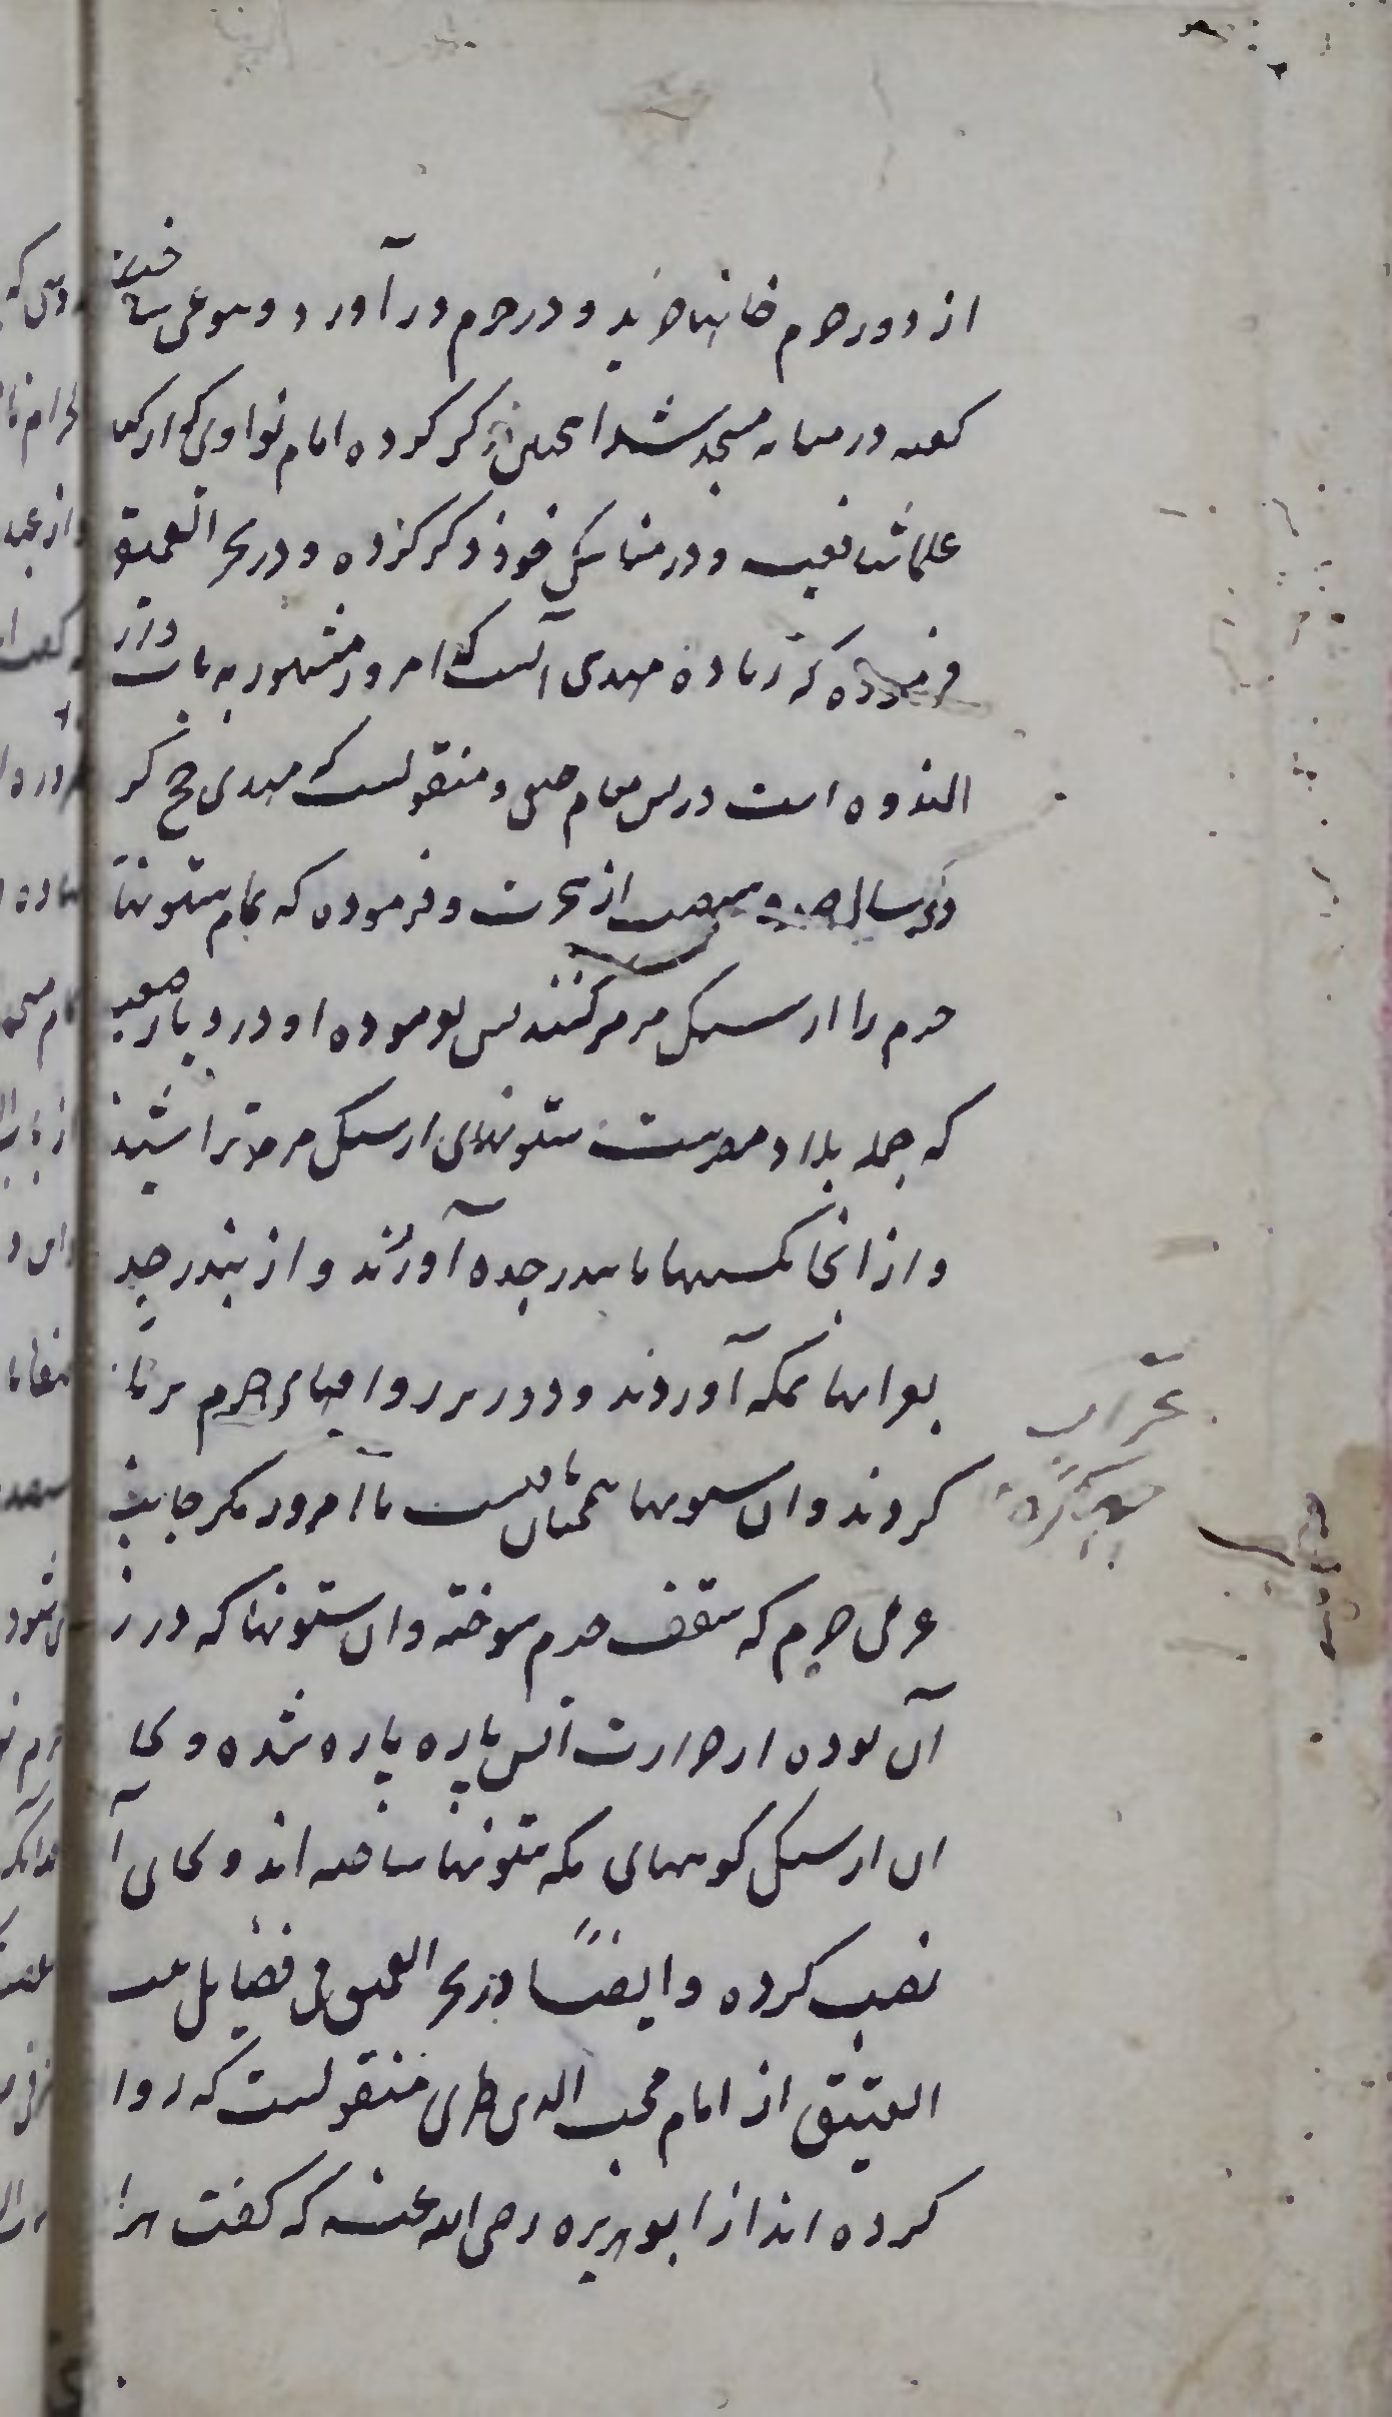 از دور حرم خانها خرید و در حرم در آورد و سوعی ساخت
کعبه در میانه مسجد شد همچنین ذکر کرده امام نواوی که از کبار
علما شافعیه و در مناسک خود ذکر کرده و در بحر العمیق
فرموده که زیاده مهدی آنست که امروز مشهور به باب دار
الندوه است در پس مقام حنفی و منقولست که مهدی حج کر
در سال صد و شصت از هجرت و فرموده که تمام ستونها
حرم را از سنک مرمر کنند پس بفرموده او در دیار صعید
که جمله بلاد مصرست ستونهای از سنک مرمر تراشید
و از انجا بکشتیها تا بندر جده آوردند و از بندر جده
بعرابها بمکه آوردند و دور بر رواقهای حرم بر پا
کردند و ان ستونها همچنان هست تا امروز مکر جانب
غربی حرم که سقف حرم سوخته و ان ستونها که در ز
آن بوده از حرارت آتش پاره پاره شده و بجا
ان از سنک کوههای مکه ستونها ساخته اند و بجای آ
نصب کرده و ایضًا در بحر العمیق فی فضایل بیت
العتیق از امام محب الدین طبری منقولست که روا
کرده اند از ابو هریره رضی الله عنه که کفت هر
عرّاب